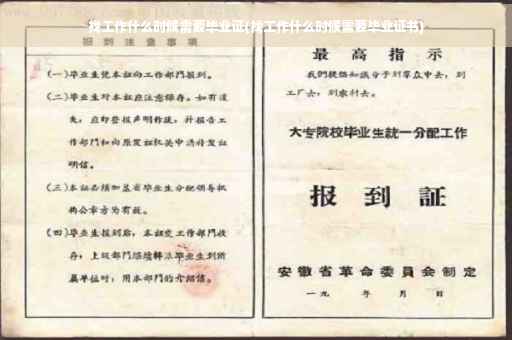 找工作什么时候需要毕业证(找工作什么时候需要毕业证书)
报到注意事项
(一)毕业生凭本证向工作部门报到。
(二)毕业生对本证应注意保存。如有遗
失,应即登报声明作废,并报告工
作部门和向原发证机关申请补发证
明信。
(三)本证必须加盖省毕业生分配领导机
构公章方为有效。
(四)毕业生报到后,本证交工作部门收
存;上级部门继续转派毕业生到所
属单位时,用本部门的介绍信。
最高指示
我们提倡知识分子到群众中去,到
工厂去,到农村去。
大专院校毕业生统一分配工作
报到证
安徽省革命委员会制定
一九 年 月 日